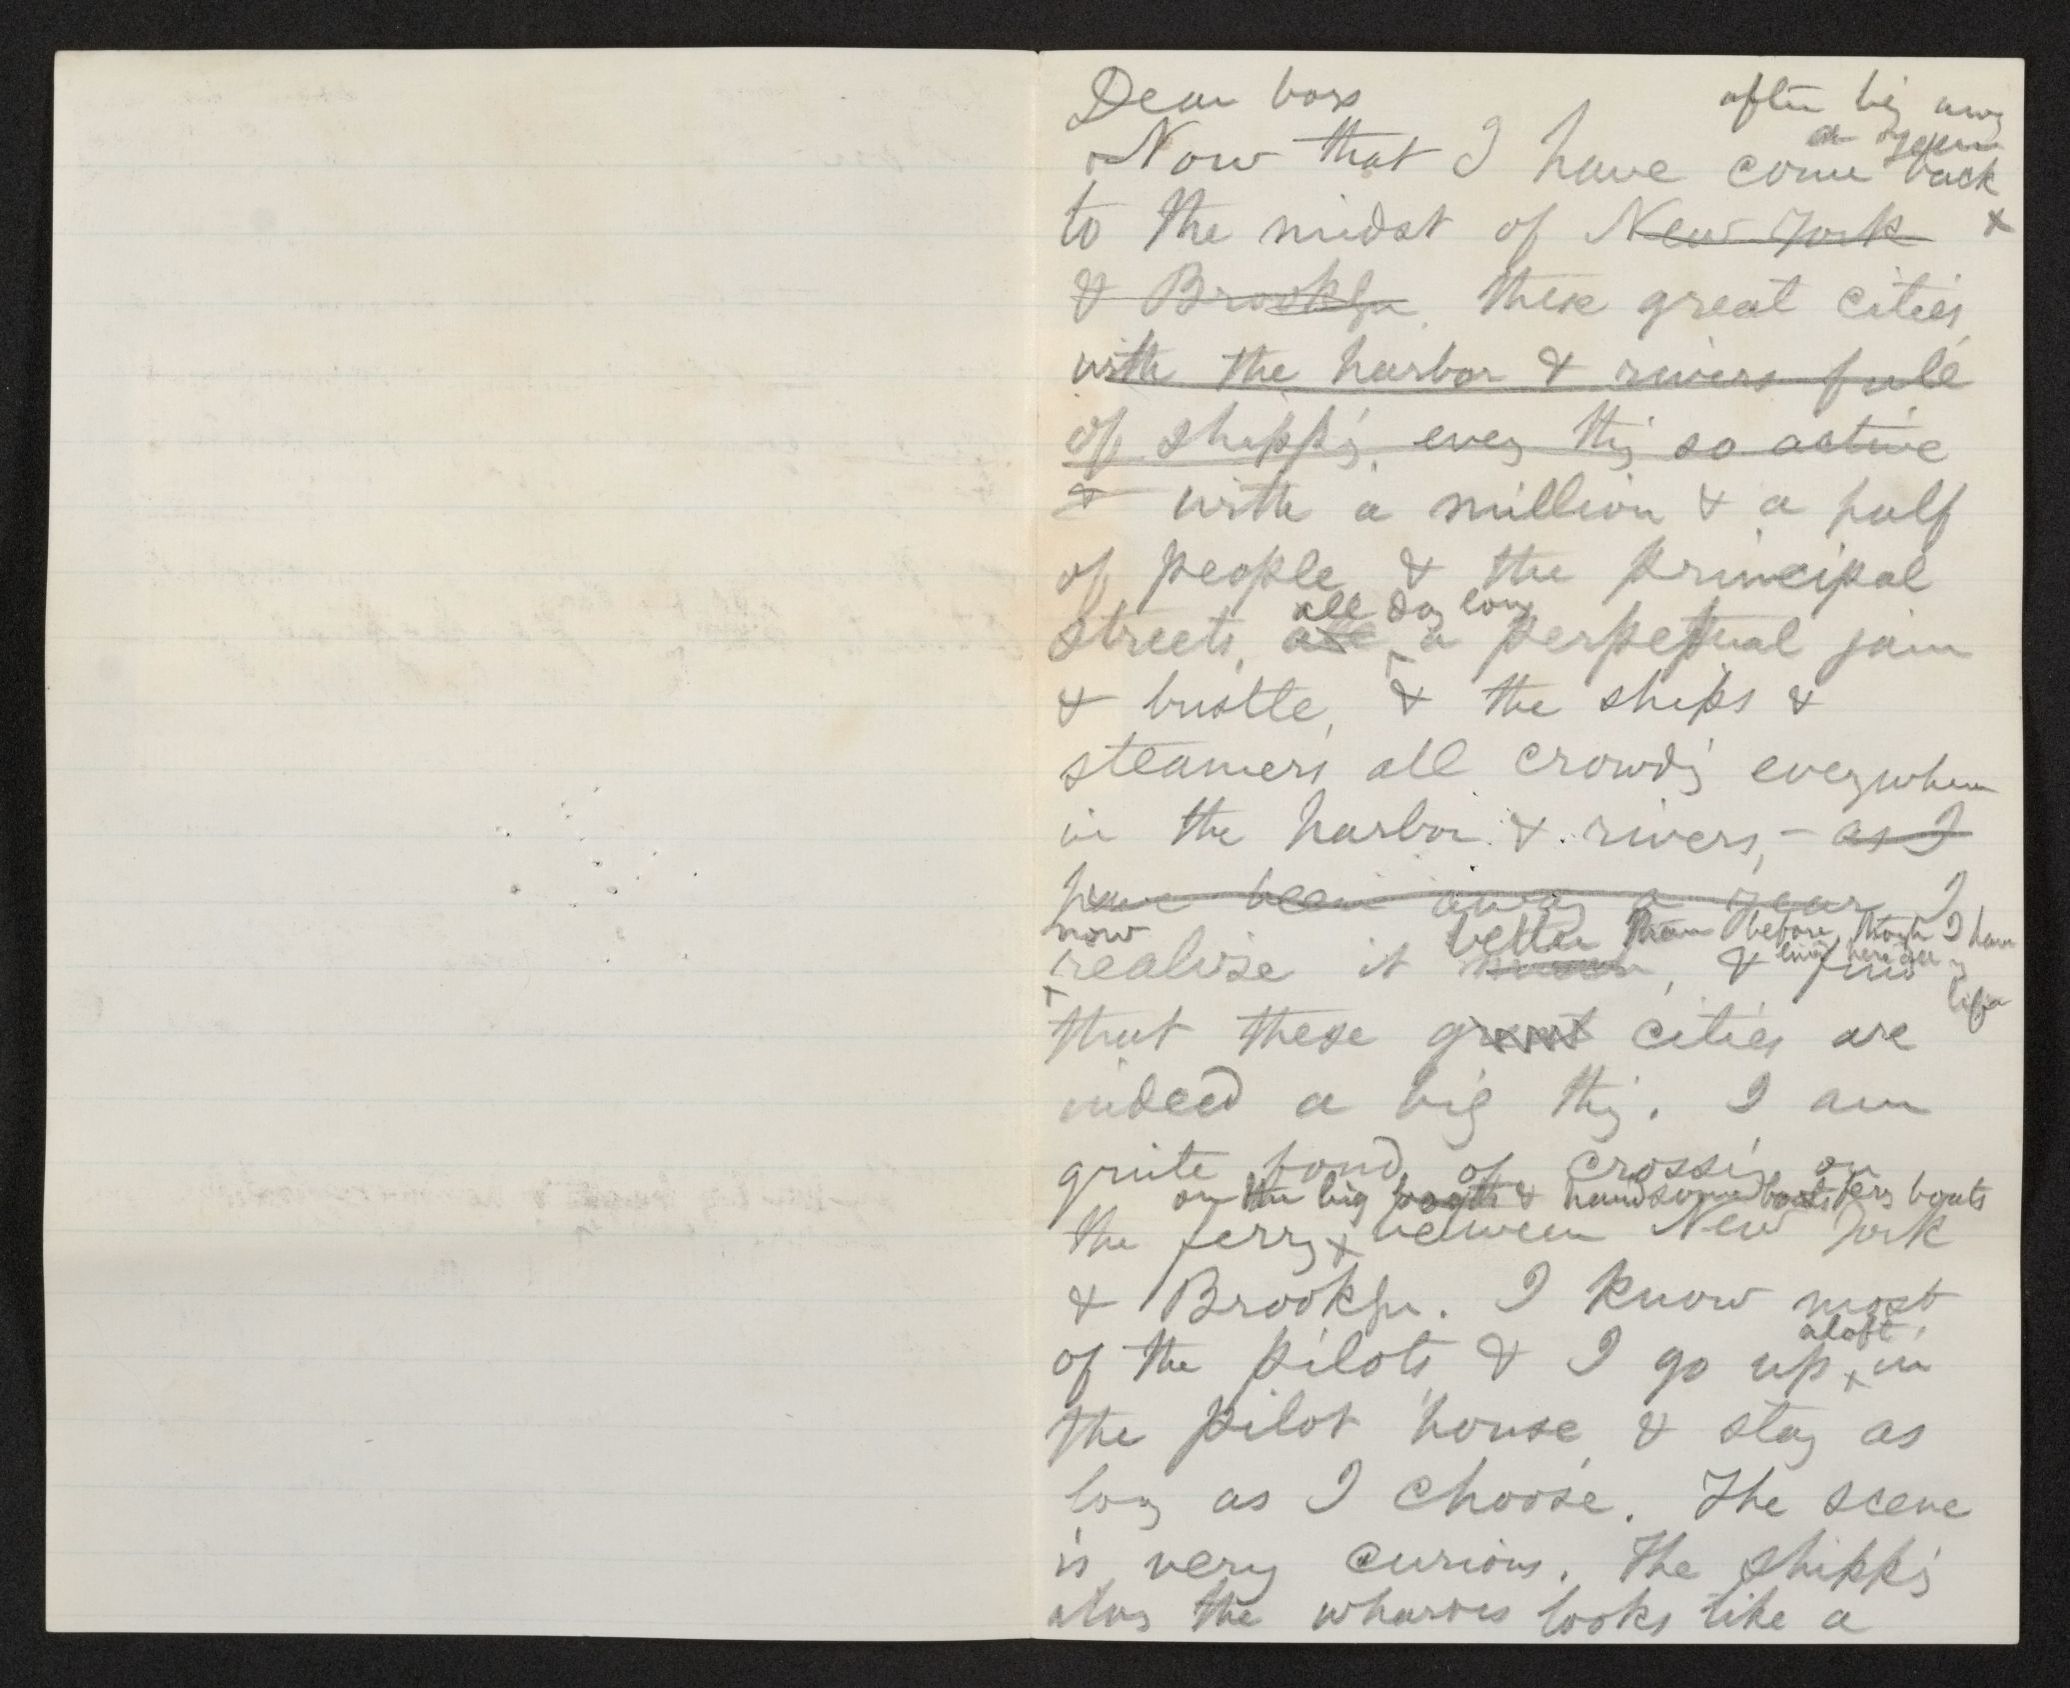 Dear boys
after big away
a year
Now that I have come back
to the midst of New York
& Brooklyn, these great cities,
with the harbor & rivers full
of shipp'g, every thing so active
& with a million & a half
of people, & the principal
all day long
streets, are a perpetual jam
& bustle, & the ships &
steamers all crowd'g everywhere
in the harbor & rivers, – as I
have been away a year I
now better than before, though I have
living here all my life
realize it, & find
that these great cities are
indeed a big thing. I am
quite fond of crossing on
on the big boats & handsome boats ferry boats
the ferry between New York
& Brooklyn. I know most
aloft,
of the pilots, & I go up in
the pilot house, & stay as
long as I choose. The scene
is very curious. The shipp'g
along the wharves looks like a